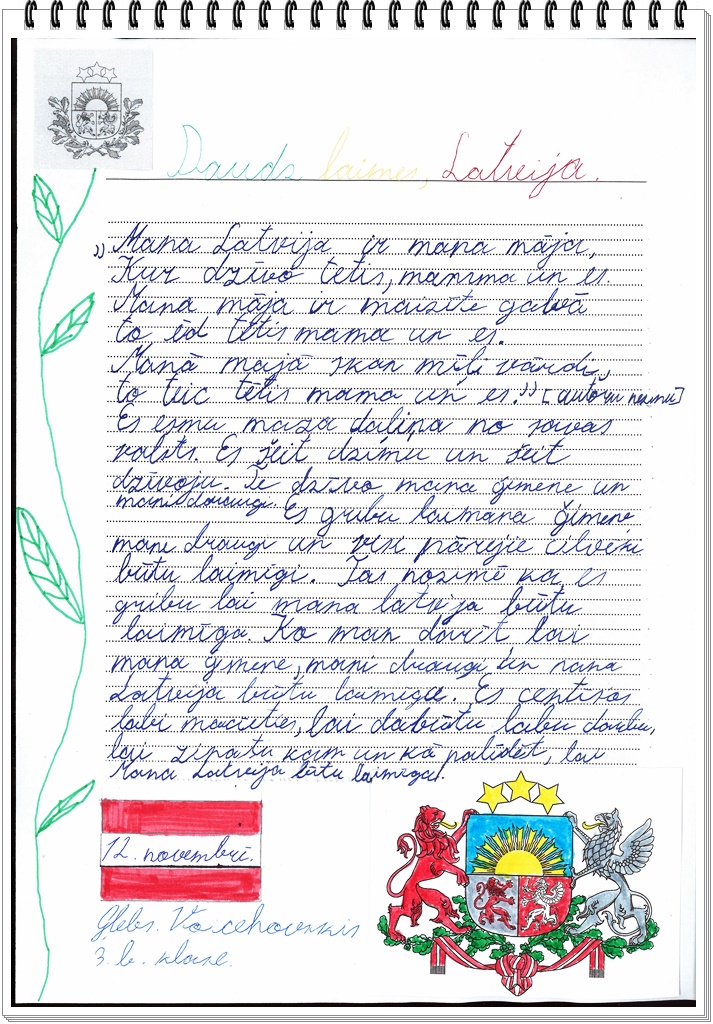 Daudz laimes, Latvija.
„Mana Latvija ir mana māja,
Kur dzīvo tētis, mamma un es.
Mana māja ir maizīte galdā
to ēd tētis mama un es.
Manā majā skan mīļi vārdi,
to teic tētis mama un es.” [autoru nezinu]
Es esmu maza daliņa no savas
valsts. Es šeit dzimu un šeit
dzīvoju. Te dzīvo mana ģimene un
mani draugi. Es gribu lai mana ģimene,
mani draugi un visi pārejie cilvēki
būtu laimīgi. Tas nozīmē ka es
gribu lai mana latvija būtu
laimīga. Ko man darīt lai
mana ģimene, mani draugi un mana
Latvija būtu laimīga. Es centīšos
labi mācīties, lai dabūtu labu darbu,
lai zinātu kam un kā palīdēt, lai
Mana Latvija būtu laimīga.
12. novembrī.
Gļebs. Voicehovskis
3. b. klase.